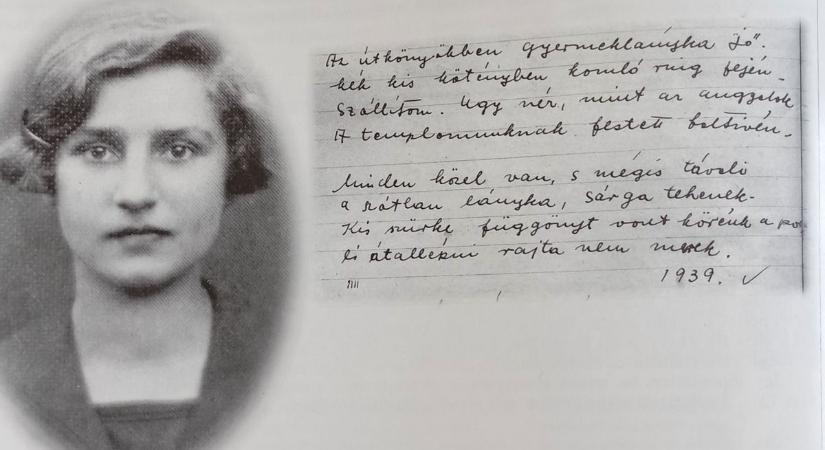 Az útkönyökben gyermeklányka jő.
kék kis kötényben komló ring fején.
Szóllitom. Ugy néz, mint az angyalok
A templomunknak festett boltivén.
Minden közel van, s mégis távoli
a szótlan lányka, sárga tehenek.
Kis szürke függönyt vont körénk a por
és átallépni rajta nem merek.
1939.